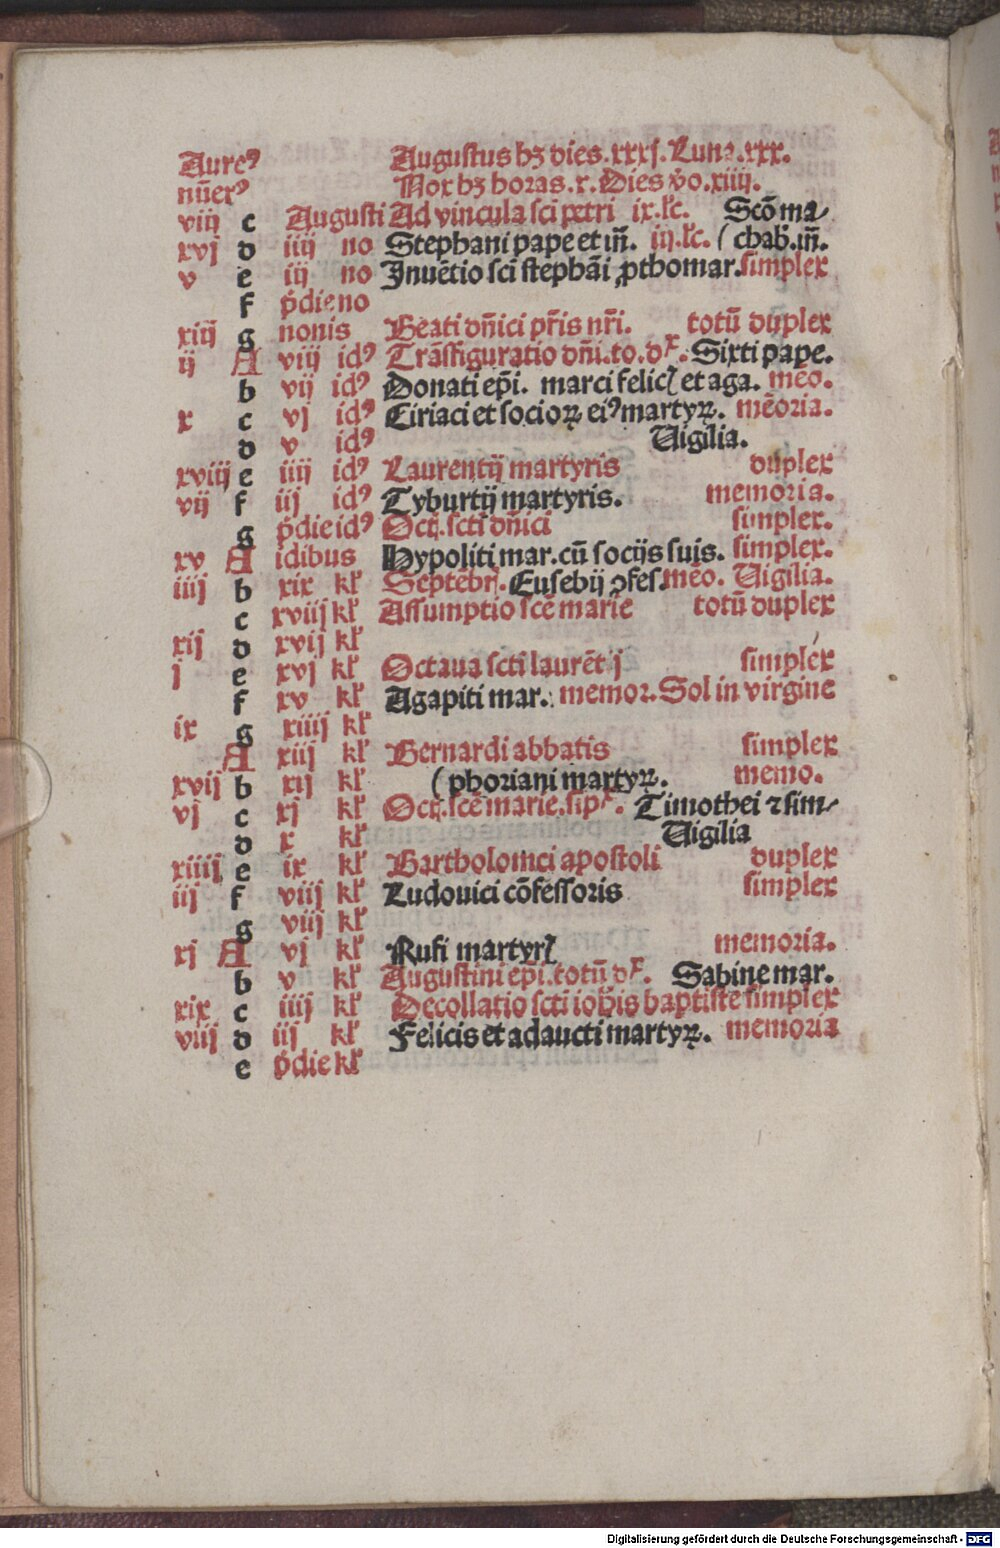 Aureꝰ Augustus hꝫ dies .xxxj. Luna .xxx.
nūerꝰ Nox hꝫ horas .x. Dies v̄o .xiiij.
viij c Augusti Ad vincula sci petri ix. lc̄. Scō ma⸗
xvj d iiij no Stephani pape et m̄. iij. lc̄. ( chab. m̄.
v e iij no Inuētio sci stephāi ꝓthomar. simplex
f p̄die no
xiij g nonis Beati dn̄ici pr̄is nr̄i. totū duplex
ij A viij idꝰ Trāsfiguratio dn̄i. to. dx. Sixti pape.
b vij idꝰ Donati ep̄i. marci felicꝭ et aga. mēo.
x c vj idꝰ Ciriaci et socioꝝ eiꝰ martyꝝ. mēoria.
d v idꝰ Uigilia.
xviij e iiij idꝰ Laurentij martyris duplex
vij f iij idꝰ Tyburtij martyris. memoria.
g p̄die idꝰ Oct̄. scti dn̄ici simplex.
xv A idibus Hypoliti mar. cū socijs suis. simplex.
iiij b xix kl̄ Septēbrꝭ. Eusebij ꝯfes. mēo. Uigilia.
c xviij kl̄ Assumptio scē marie totū duplex
xij d xvij kl̄
j e xvj kl̄ Octaua scti laurēt ij simplex
f xv kl̄ Agapiti mar. memor. Sol in virgine
ix g xiiij kl̄
A xiij kl̄ Bernardi abbatis simplex
xvij b xij kl̄ ( phoriani martyꝝ. memo.
vj c xj kl̄ Oct̄. scē marie. sipx. Timothei ⁊ sim⸗
d x kl̄ Uigilia
xiiij e ix kl̄ Bartholomei apostoli duplex
iij f viij kl̄ Ludouici cōfessoris simplex
g vij kl̄
xj A vj kl̄ Rufi martyrꝭ memoria.
b v kl̄ Augustini ep̄i. totū dx. Sabine mar.
xix c iiij kl̄ Decollatio scti ioh̄is baptiste simplex
viij d iij kl̄ Felicis et adaucti martyꝝ. memoria
e p̄die kl̄
Digitalisierung gefördert durch die Deutsche Forschungsgemeinschaft - DFG